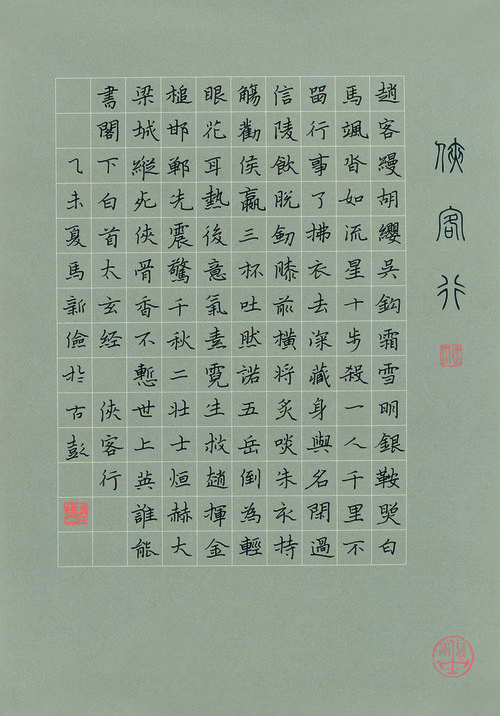 俠客行
趙客縵胡纓吳鈎霜雪明銀鞍照白
馬颯沓如流星十步殺一人千里不
留行事了拂衣去深藏身與名閑過
信陵飲脫劍膝前橫將炙啖朱亥持
觴勸侯嬴三杯吐然諾五岳倒為輕
眼花耳熱後意氣素霓生救趙揮金
槌邯鄲先震驚千秋二壯士烜赫大
梁城縱死俠骨香不慙世上英誰能
書閣下白首太玄經 俠客行
乙未夏馬新儉於古彭